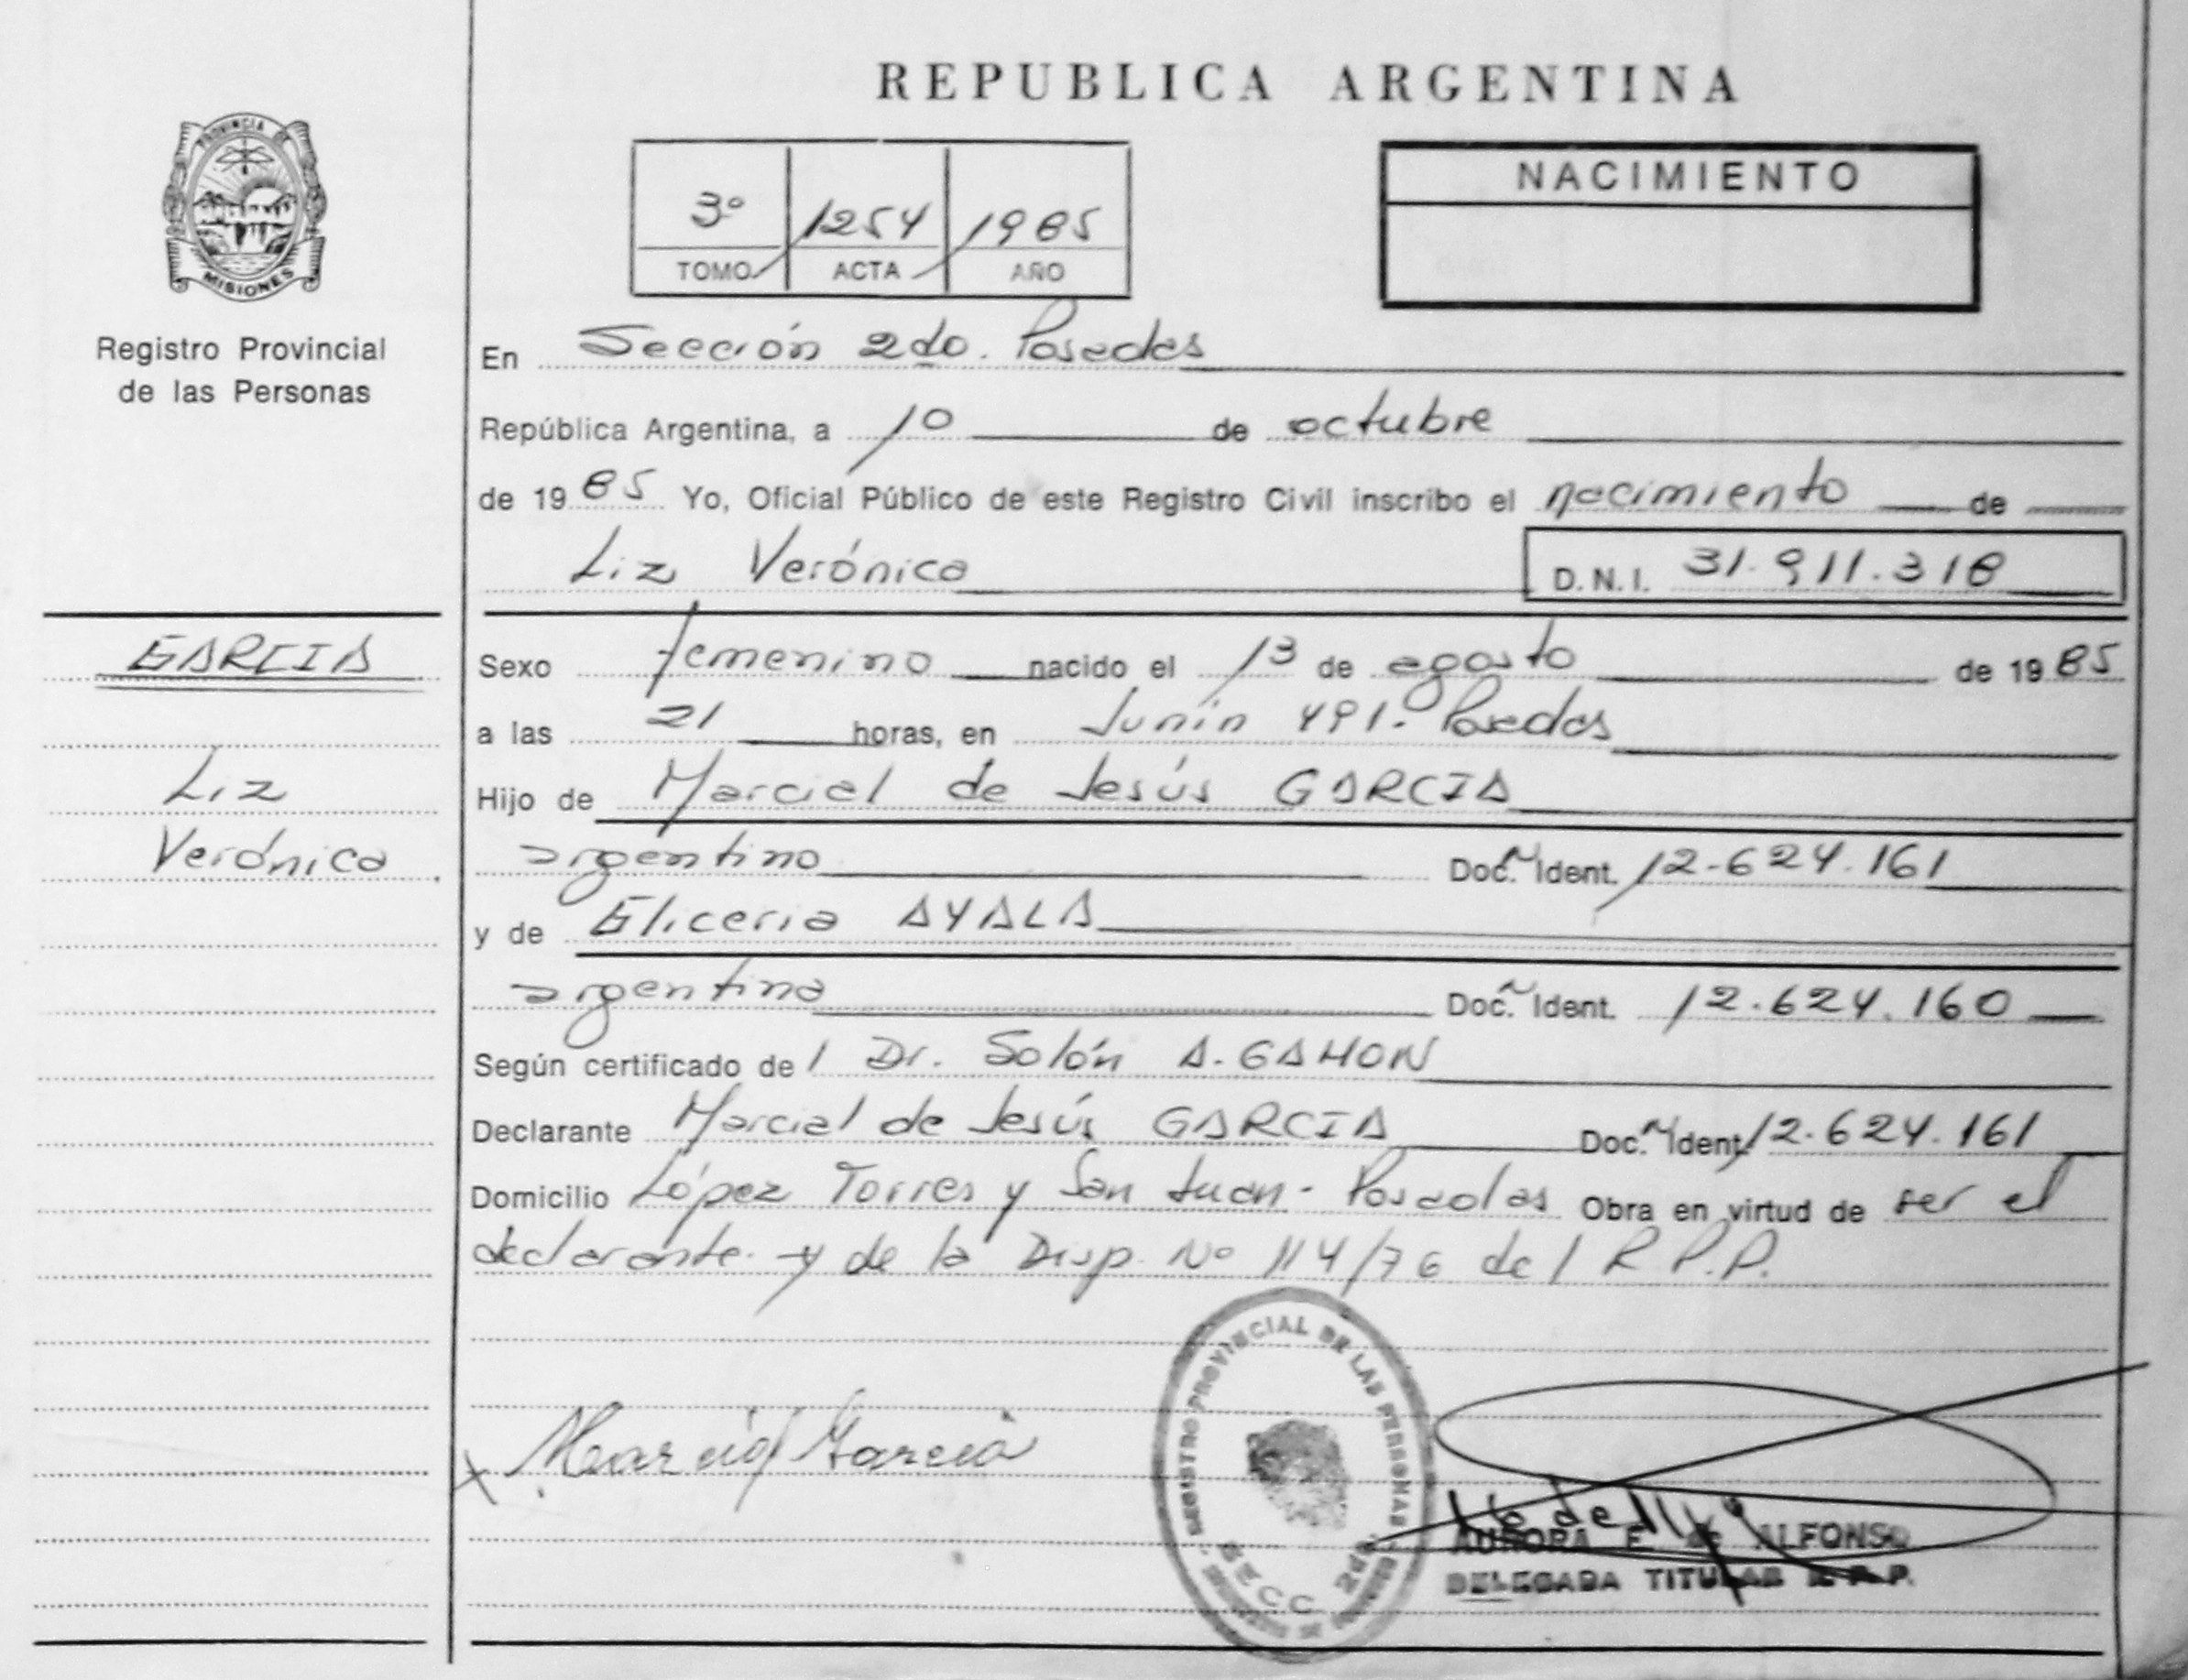 REPUBLICA ARGENTINA
PROVINCIA DE
MISIONES
Registro Provincial
de las Personas
3º 1254 1985
TOMO ACTA AÑO
NACIMIENTO
En Sección 2do. Posadas
República Argentina, a 10 de octubre
de 1985 Yo, Oficial Público de este Registro Civil inscribo el nacimiento de
Liz Verónica D.N.I. 31.911.318
GARCIA
Liz
Verónica
Sexo femenino nacido el 13 de agosto de 1985
a las 21 horas, en Junín 491- Posadas
Hijo de Marcial de Jesús GARCIA
argentino Doc. Ident. 12.624.161
y de Eliceria AYALA
argentina Doc. Ident. 12.624.160
Según certificado del Dr. Solón A. GAHON
Declarante Marcial de Jesús GARCIA Doc. Ident 12.624.161
Domicilio López Torres y San Juan - Posadas Obra en virtud de ser el
declarante y de la Disp. Nº 114/76 del R.P.P.
Marcial Garcia
REGISTRO PROVINCIAL DE LAS PERSONAS
SECC. 2da
AURORA E de ALFONSO
DELEGADA TITULAR R.P.P.